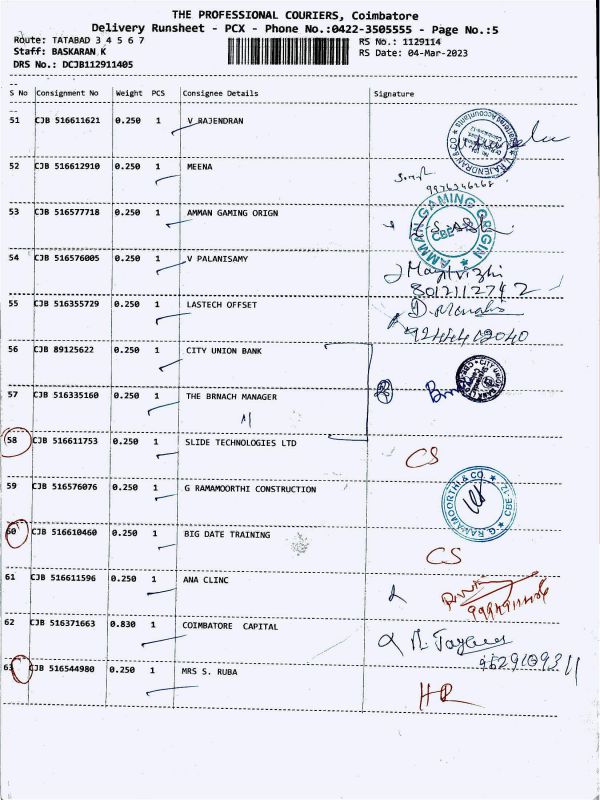 THE PROFESSIONAL COURIERS, Coimbatore
Delivery Runsheet - PCX - Phone No.:0422-3505555 - Page No.:5
Route: TATABAD 3 4 5 6 7
RS No.: 1129114
Staff: BASKARAN K
RS Date: 04-Mar-2023
DRS No.: DCJB112911405
S No Consignment No Weight PCS Consignee Details Signature
51 CJB 516611621 0.250 1 V RAJENDRAN
V. RAJENDRAN & CO
Chartered Accountants
52 CJB 516612910 0.250 1 MEENA
53 CJB 516577718 0.250 1 AMMAN GAMING ORIGN
AMMAN GAMING ORIGIN
CBE
54 CJB 516576005 0.250 1 V PALANISAMY
8012112742
55 CJB 516355729 0.250 1 LASTECH OFFSET
9244402040
56 CJB 89125622 0.250 1 CITY UNION BANK
CITY UNION BANK
57 CJB 516335160 0.250 1 THE BRNACH MANAGER
58 CJB 516611753 0.250 1 SLIDE TECHNOLOGIES LTD
CS
59 CJB 516576076 0.250 1 G RAMAMOORTHI CONSTRUCTION
G. RAMAMOORTHI & CO.
CBE-12
60 CJB 516610460 0.250 1 BIG DATE TRAINING
CS
61 CJB 516611596 0.250 1 ANA CLINC
62 CJB 516371663 0.830 1 COIMBATORE CAPITAL
9629109311
63 CJB 516544980 0.250 1 MRS S. RUBA
HR